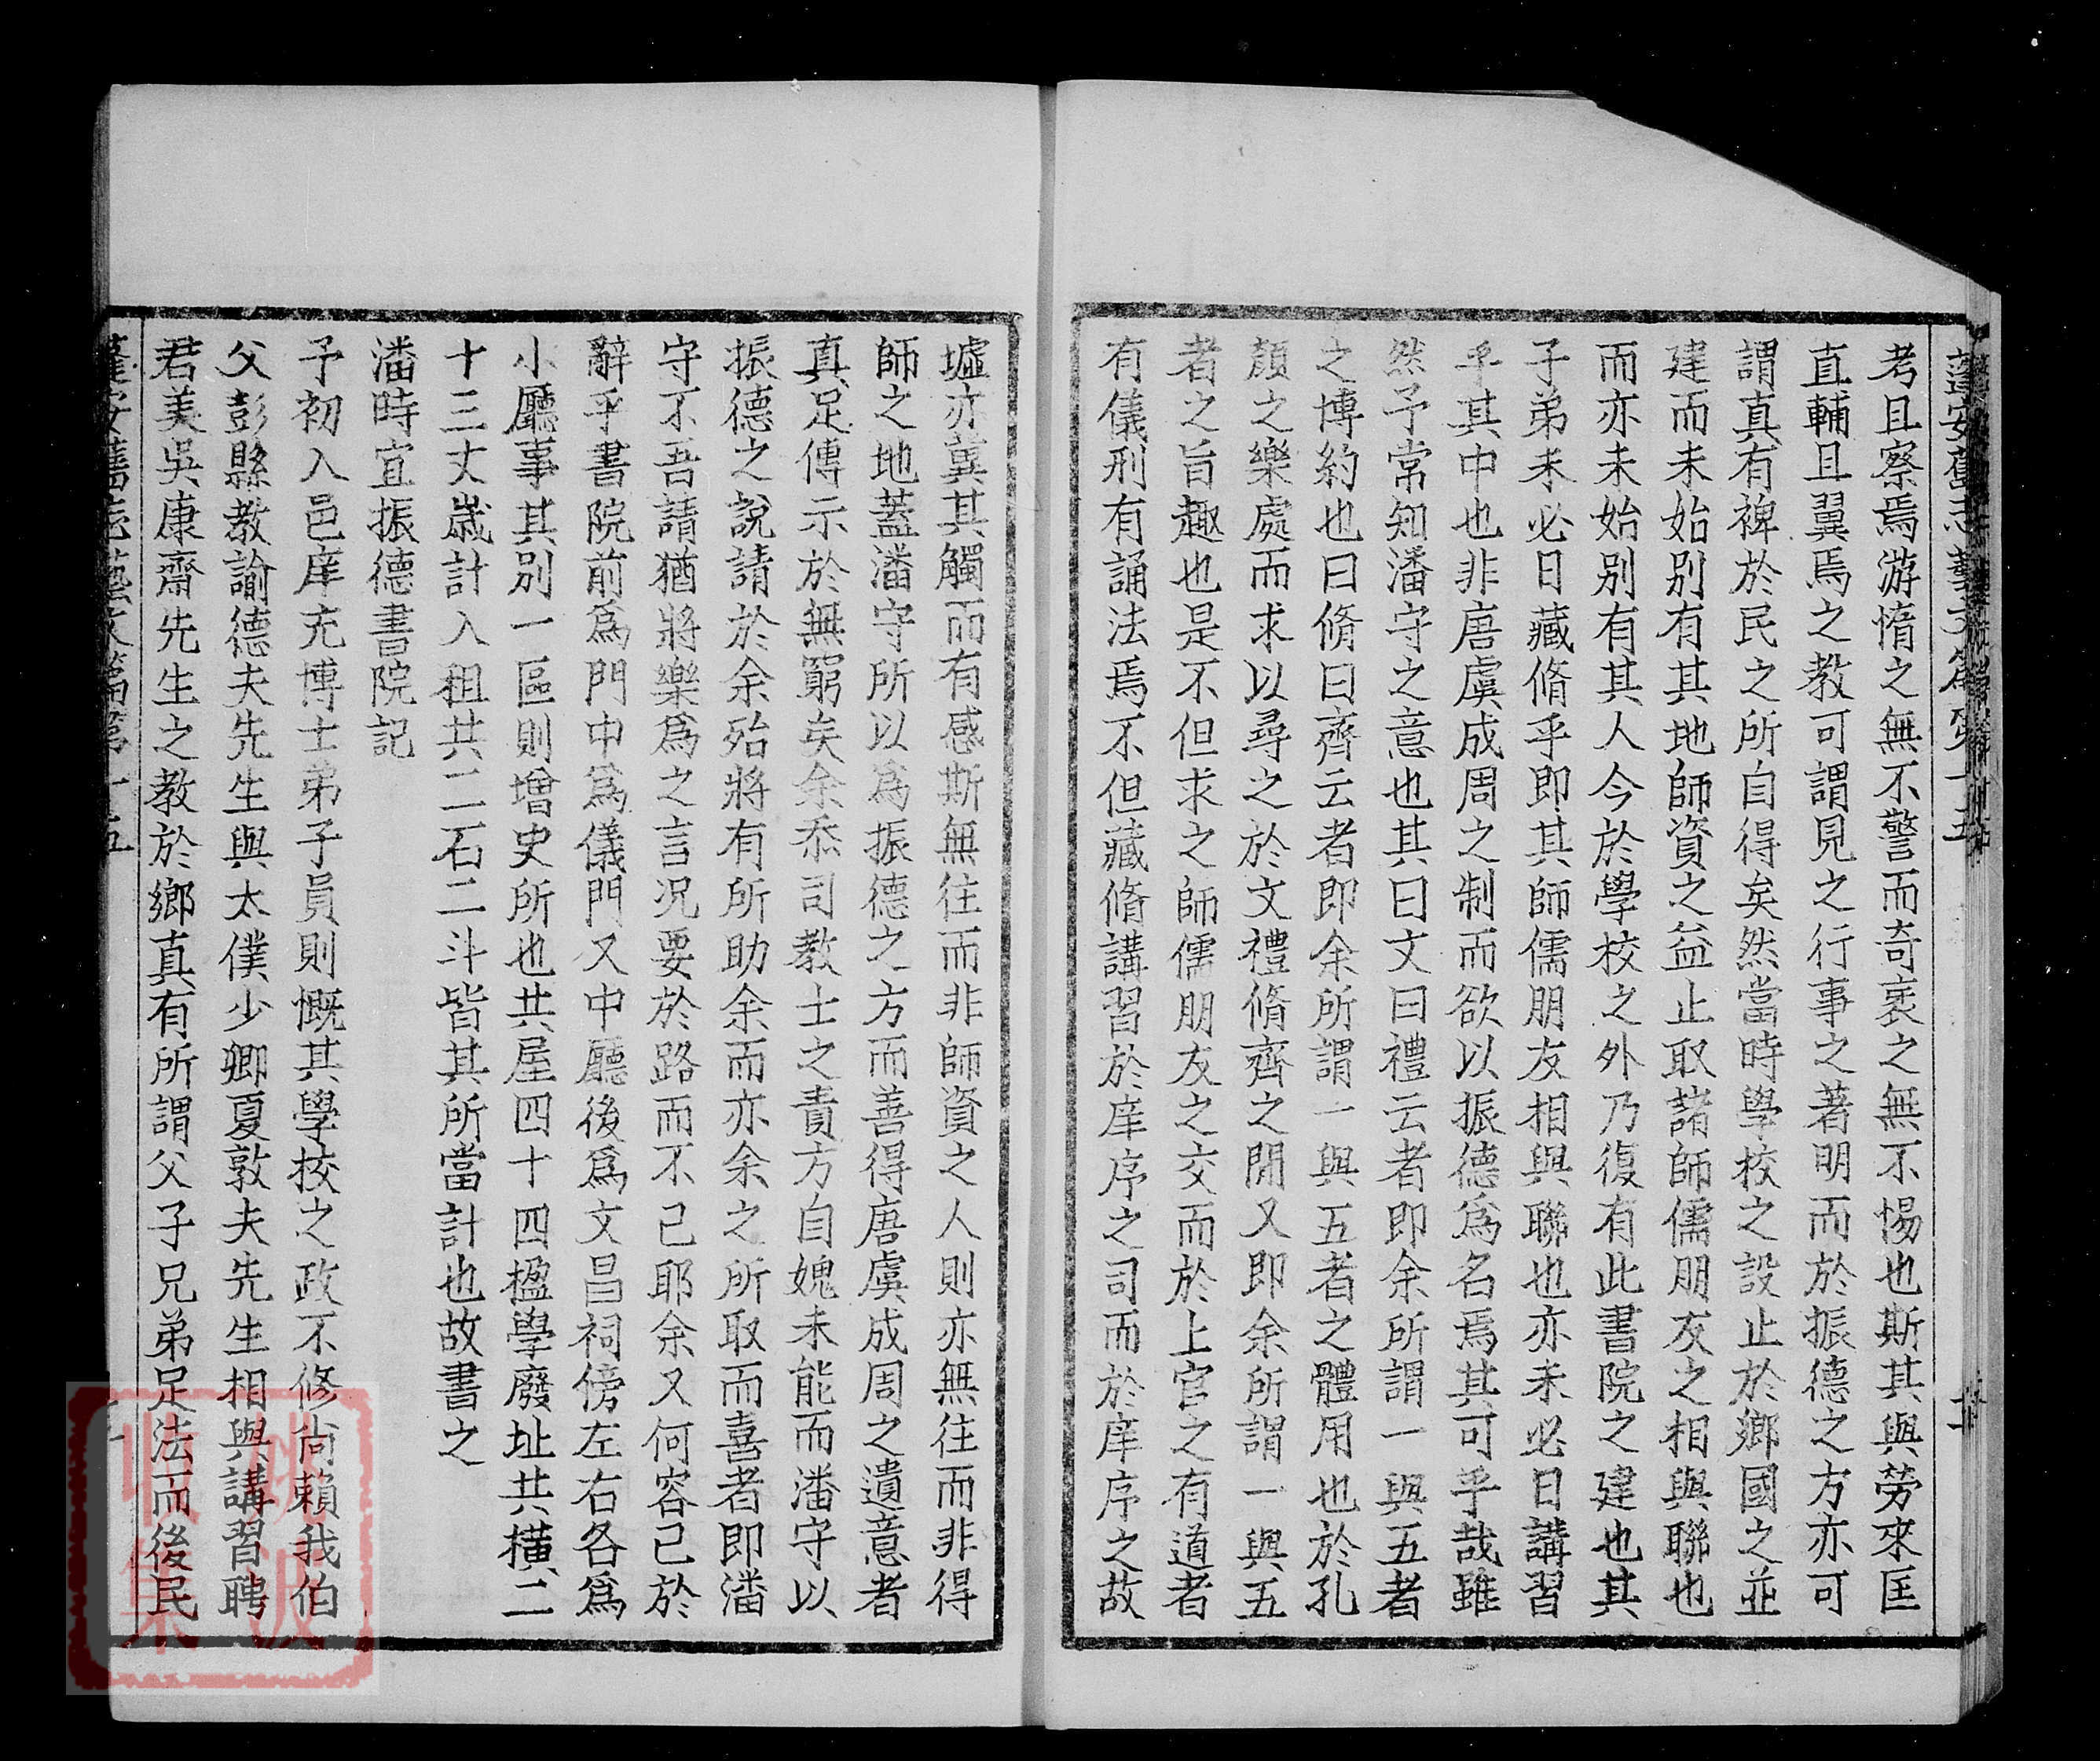 蓬安舊志藝文篇第十五
考且察焉游惰之無不警而奇衺之無不惕也斯其與勞來匡
直輔且翼焉之教可謂見之行事之著明而於振德之方亦可
謂真有裨於民之所自得矣然當時學校之設止於鄉國之並
建而未始別有其地師資之益止取諸師儒朋友之相與聯也
而亦未始別有其人今於學校之外乃復有此書院之建也其
子弟未必日藏脩乎即其師儒朋友相與聯也亦未必日講習
乎其中也非唐虞成周之制而欲以振德為名焉其可乎哉雖
然予常知潘守之意也其曰文曰禮云者即余所謂一與五者
之博約也曰脩曰齊云者即余所謂一與五者之體用也於孔
顏之樂處而求以尋之於文禮脩齊之間又即余所謂一與五
者之旨趣也是不但求之師儒朋友之交而於上官之有道者
有儀刑有誦法焉不但藏脩講習於庠序之司而於庠序之故
墟亦冀其觸而有感斯無往而非師資之人則亦無往而非得
師之地蓋潘守所以為振德之方而善得唐虞成周之遺意者
真足傳示於無窮矣余忝司教士之責方自媿未能而潘守以
振德之說請於余殆將有所助余而亦余之所取而喜者即潘
守不吾請猶將樂為之言況要於路而不已耶余又何容已於
辭乎書院前為門中為儀門又中廳後為文昌祠傍左右各為
小廳事其別一區則增史所也共屋四十四楹學廢址共橫二
十三丈歲計入租共二石二斗皆其所當計也故書之
潘時宜振德書院記
予初入邑庠充博士弟子員則慨其學校之政不修尚賴我伯
父彭縣教諭德夫先生與太僕少卿夏敦夫先生相與講習聘
君美吳康齋先生之教於鄉真有所謂父子兄弟足法而後民
蓬安舊志藝文篇第十五